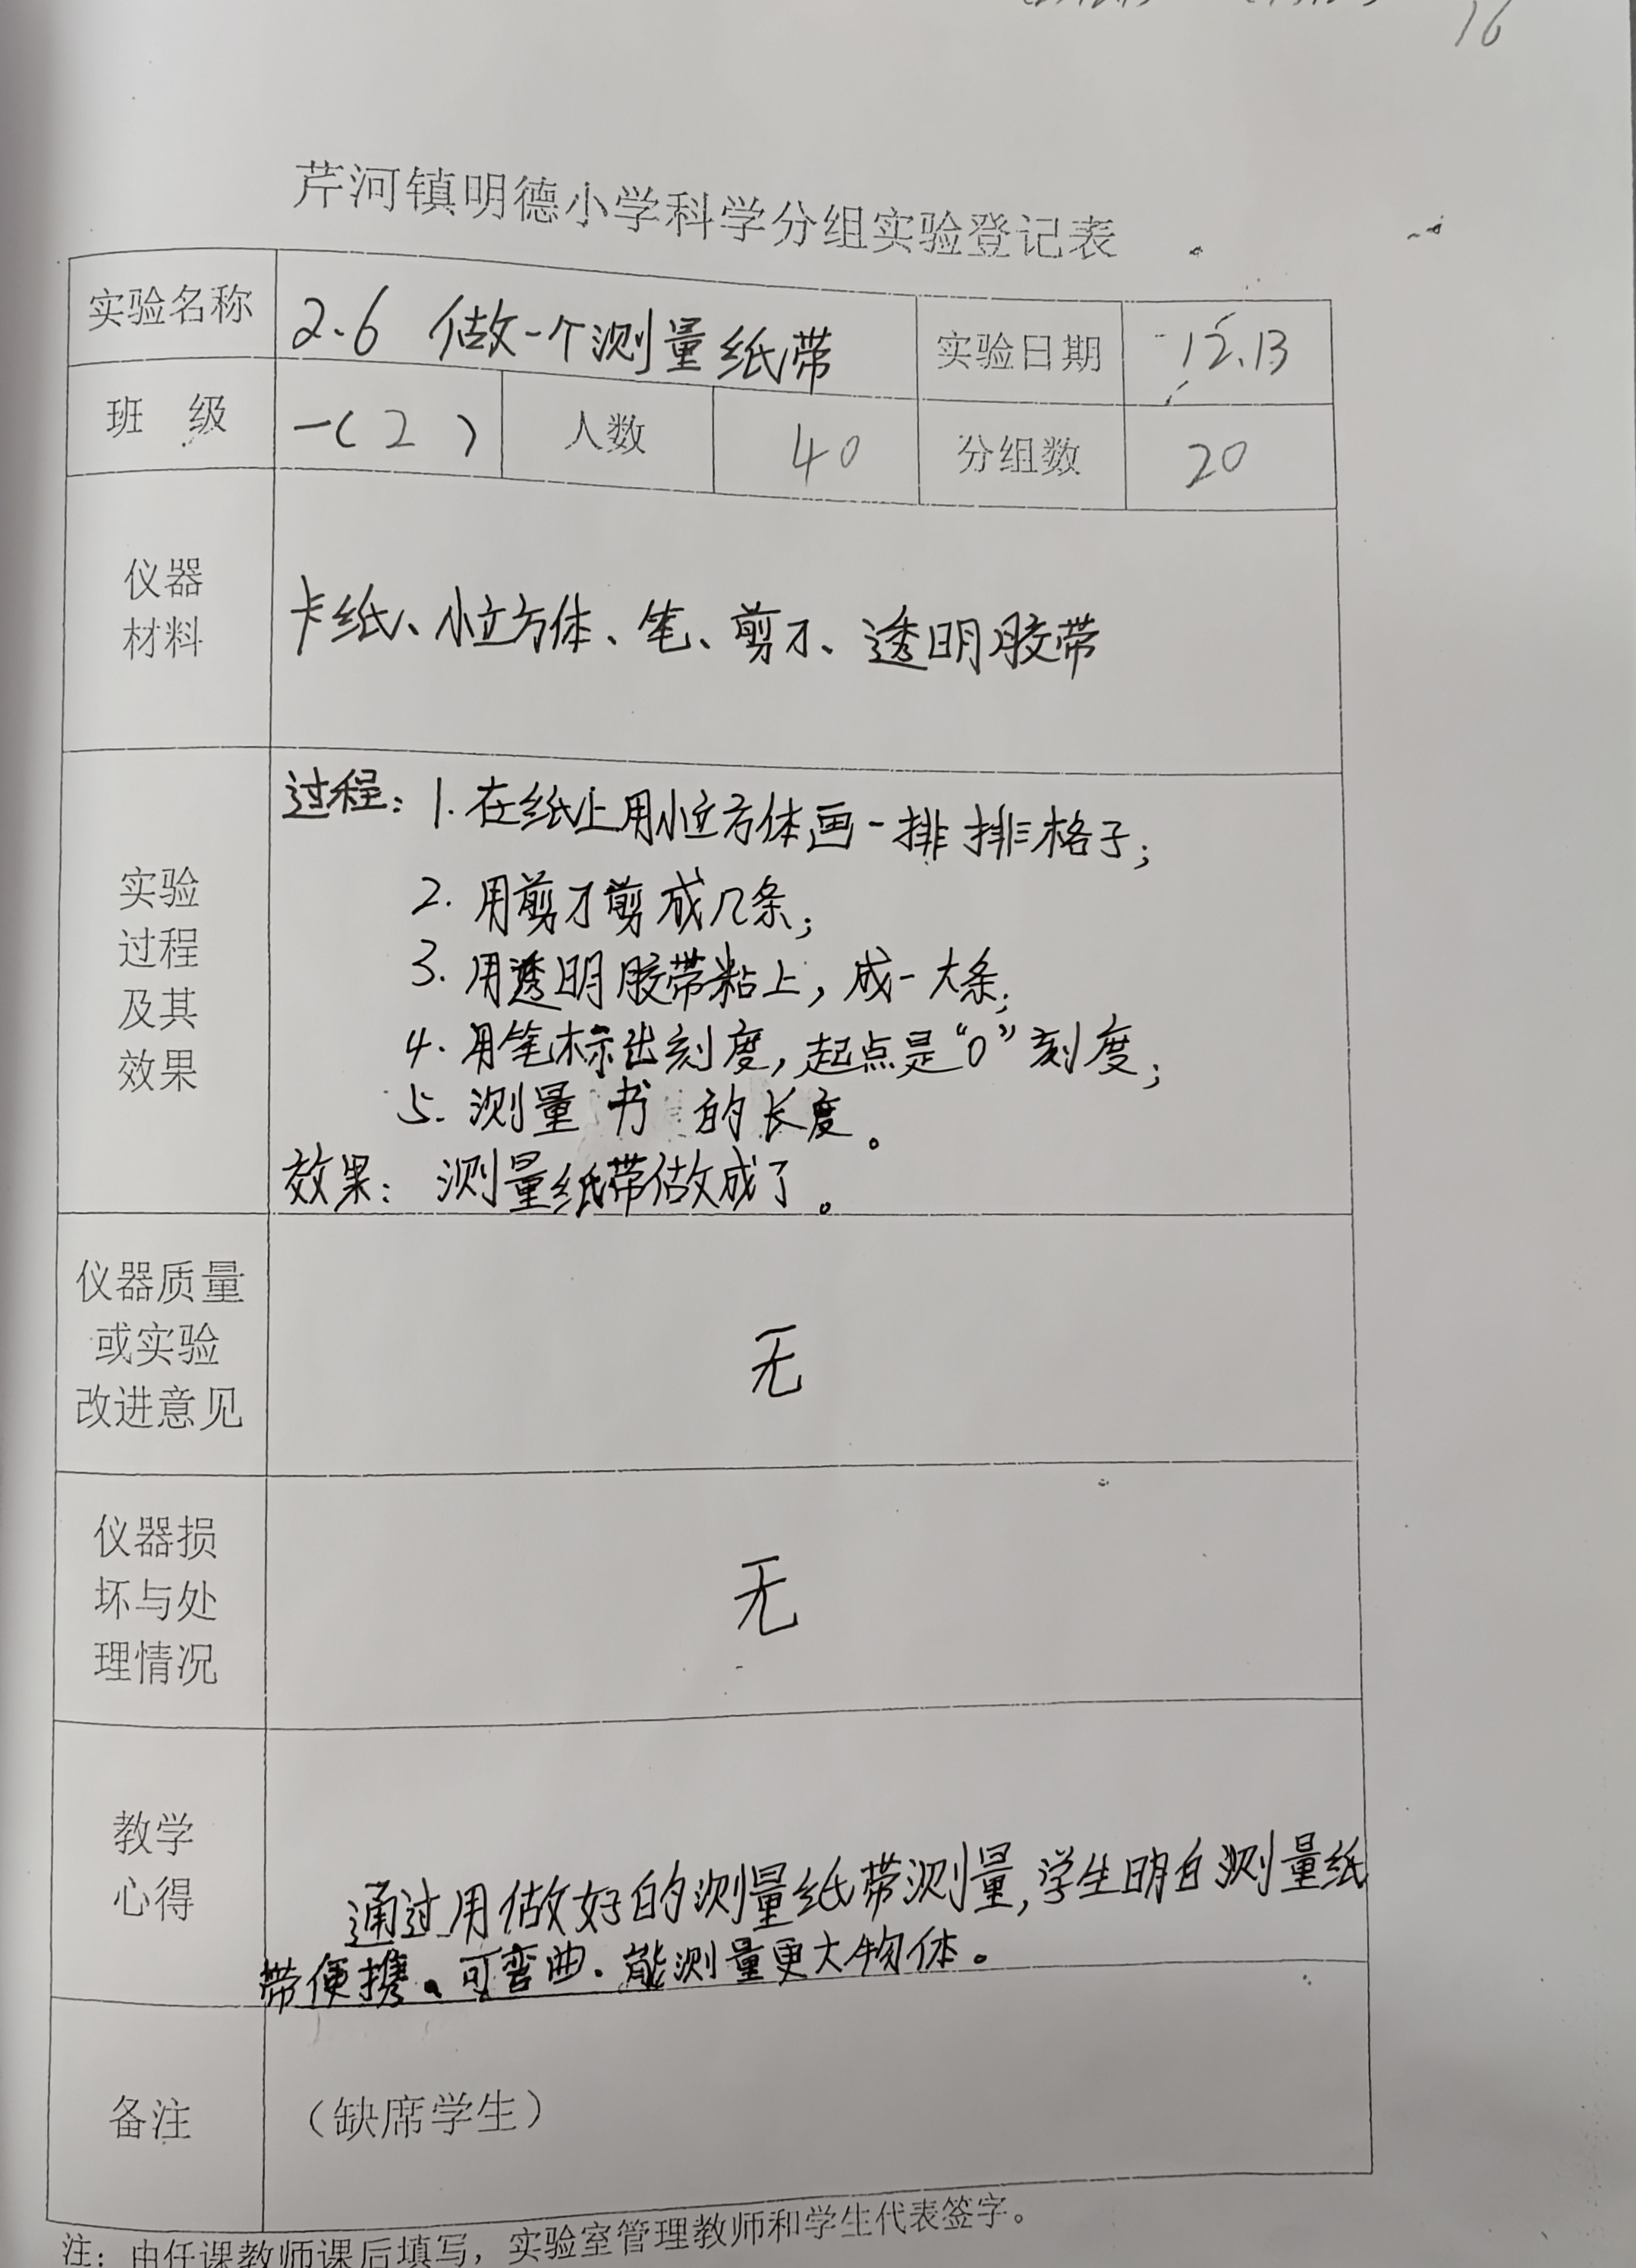 16
芹河镇明德小学科学分组实验登记表
实验名称 2.6 做一个测量纸带 实验日期 12.13
班 级 一(2) 人数 40 分组数 20
仪器
材料
卡纸、小立方体、笔、剪刀、透明胶带
实验
过程
及其
效果
过程：1.在纸上用小立方体画一排排格子；
2.用剪刀剪成几条；
3.用透明胶带粘上，成一大条；
4.用笔标出刻度，起点是“0”刻度；
5.测量书的长度。
效果：测量纸带做成了。
仪器质量
或实验
改进意见
无
仪器损
坏与处
理情况
无
教学
心得
通过用做好的测量纸带测量，学生明白测量纸
带便携、可弯曲、能测量更大物体。
备注 （缺席学生）
注：由任课教师课后填写，实验室管理教师和学生代表签字。